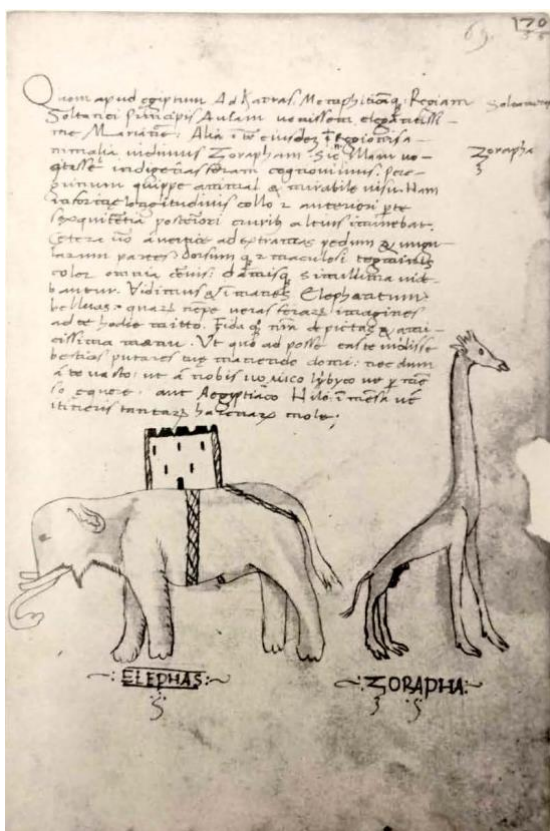 69. 170
35
Quom apud egiptum Ad Kairas. Memphiticamq. Regiam
Soltanei Principis Aulam venissem elegantissi-
me Mariane: Alia eiusdez regionis a-
nimalia vidimus Zorapham. Sic Illam vo-
indigenas feram cognovimus. Pere-
grinum quippe animal & mirabile visu. Nam
longitudinis collo & anteriori pte
posteriori cruribus altius iminebat.
Cetera vo a vertice ad extremas pedum & ungu-
larum partes: dorsum q. & maculosi tegminis
color omnia cervis damisq. simillima vide-
bantur. Vidimus & imanes Elephantum
belluas. quarum nempe veras ferarum imagines
ad te hodie mitto. Fida q. nra depictas & ami-
cissima manu. Ut quo ad posse eas te vidisse
bestias putares tuę manendo domi: nec dum
a te vasto: ut a nobis lybyco
aut Aegyptiaco Nilo
itineris tantarum mole;
Soltaneus
Zorapha
ELEPHAS
ZORAPHA